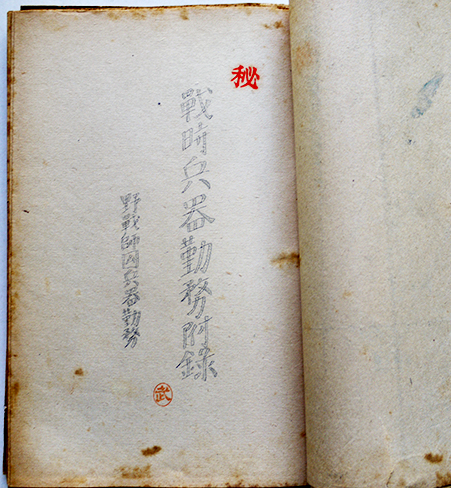 秘
戰時兵器勤務附録
野戰師団兵器勤務
武